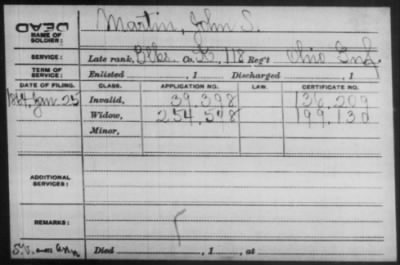 DEAD
NAME OF SOLDIER: Martin, John S.
SERVICE: Late rank, Co. K, 118 Reg't Ohio Inf.
TERM OF SERVICE: Enlisted , 1 Discharged , 1
DATE OF FILING. CLASS. APPLICATION NO. LAW. CERTIFICATE NO.
1864, Jan. 25 Invalid, 39,398 36,209
Widow, 254,548 199,130
Minor,
ADDITIONAL SERVICES:
REMARKS:
Died , 1 , at